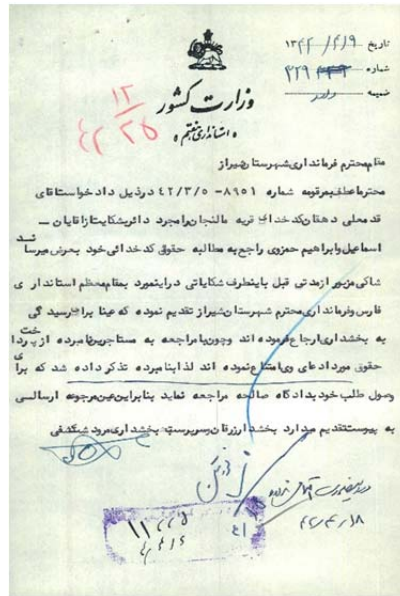 تاریخ ۱۳۴۲/۴/۹
شماره ۳۲۹
ضمیمه دارد
وزارت کشور
استانداری هفتم
۱۲
۴۲ ۲۵
مقام محترم فرمانداری شهرستان شیراز
محترما عطف بمرقومه شماره ۸۹۵۱- ۴۲/۳/۵ درذیل دادخواست اقای
قدمعلی دهقان کدخدای قریه مالنجان رامجرد دائربشکایت ازاقایان
اسماعیل وابراهیم حمزوی راجع به مطالبه حقوق کدخدائی خود بعرض میرساند
شاکی مزبور ازمدتی قبل باینطرف شکایاتی دراینمورد بمقام معظم استانداری
فارس وفرمانداری محترم شهرستان شیراز تقدیم نموده که عینا برای رسیدگی
به بخشداری ارجاع فرموده اند وچون بامراجعه به مستاجرین نامبرده ازپرداخت
حقوق مورد ادعای وی امتناع نموده اند لذا بنامبرده تذکرداده شد که برای
وصول طلب خود بدادگاه صالحه مراجعه نماید بنابراین عین مرجوعه ارسالی
به پیوست تقدیم میدارد بخشدار زرقان وسرپرست بخشداری مرودشت کشفی
۴۲/۴/۱۸
۱۱۲۲۵